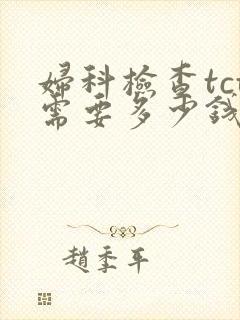 婦科檢查tct
需要多少錢
趙季平